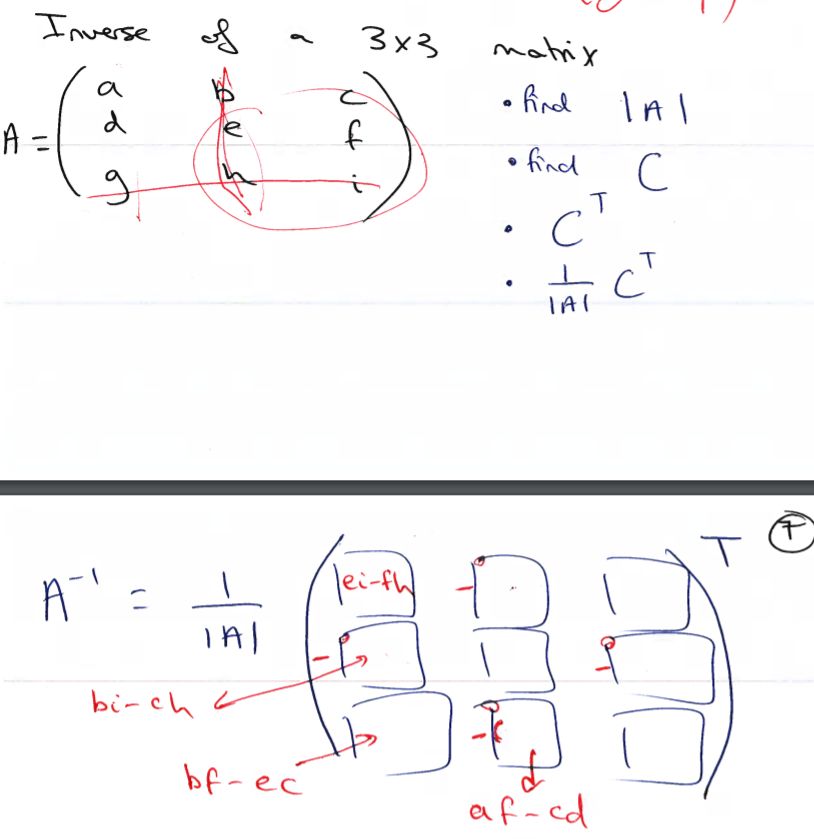 Inverse of a 3x3 matrix
A = ( a b c
d e f
g h i )
• find |A|
• find C
• C^T
• 1/|A| C^T
7
A^-1 = 1/|A| ( |ei-fh| - T
- -
bi-ch
-
bf-ec
af-cd